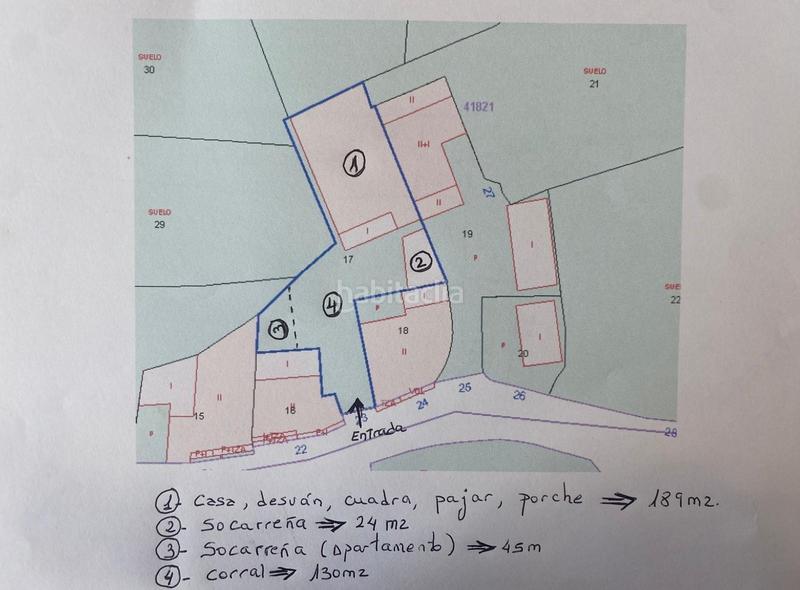 SUELO
30
SUELO
21
II
41821
II+I
1
II
27
SUELO
29
I
17
19
P
I
2
SUELO
22
habitaclia
4
3
P
18
II
I
P
20
I
I
II
15
P
I
II
16
25
26
24
23
Entrada
22
28
1- Casa, desván, cuadra, pajar, porche ⇒ 189m2.
2- Socarreña ⇒ 24 m2
3- Socarreña (apartamento) ⇒ 45m
4- corral ⇒ 130m2